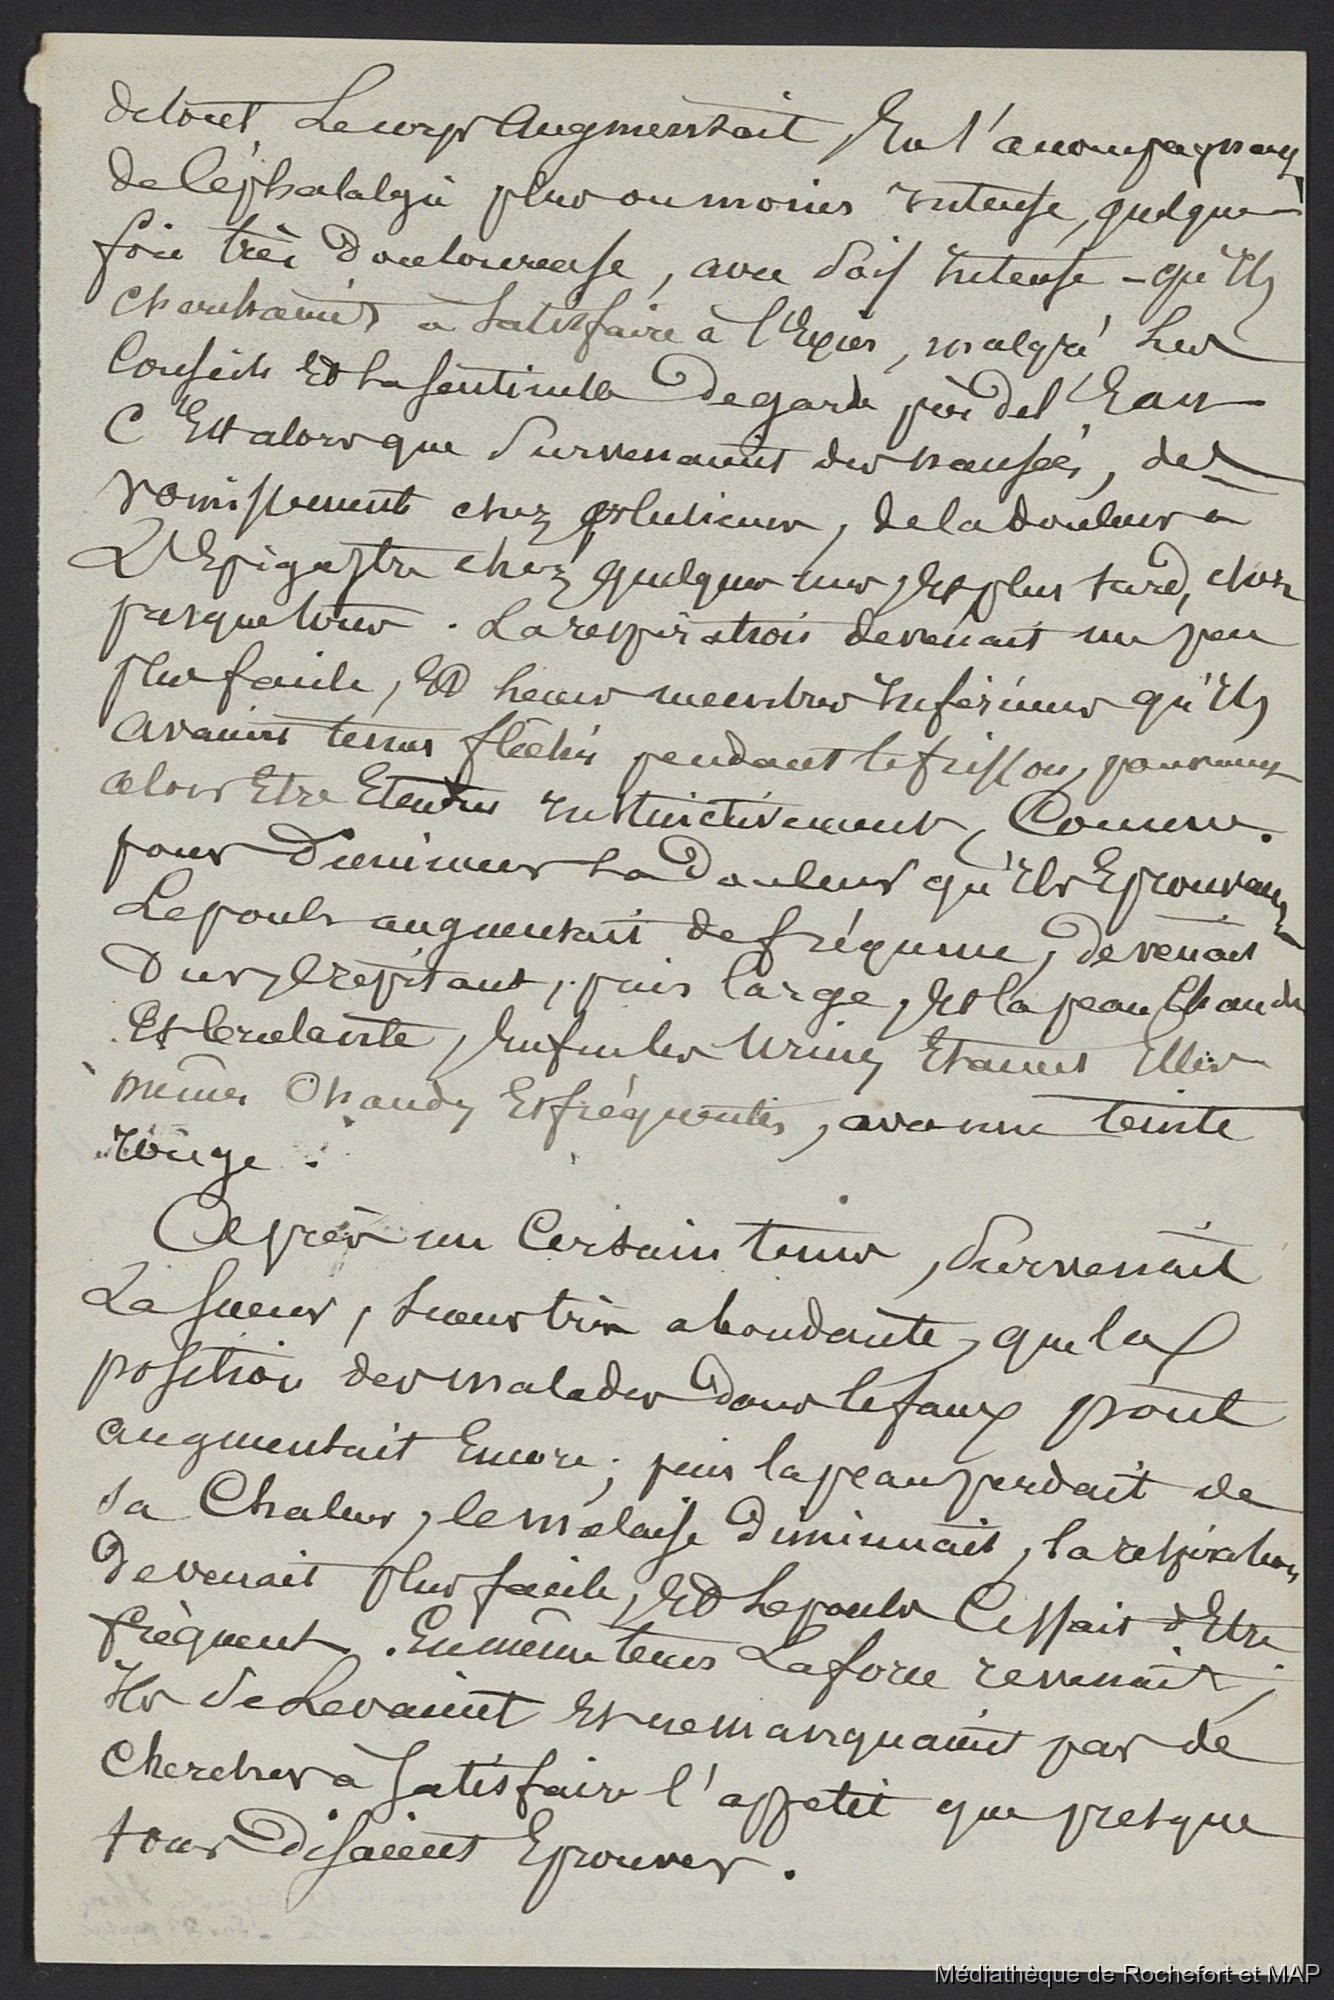 de tout Le corps Augmentait, En s'accompagnant
de Céphalalgie plus ou moins Intense, quelque-
fois très Douloureuse, avec Soif Intense - qu'Ils
cherchaient à Satisfaire à l'Excès, malgré Les
Conseils Et La Sentinelle De garde près del'Eau
C'Est alors que Survenaient des nausées, des
Vomissements chez plusieurs, de la douleur à
L'Epigastre chez quelques uns, Et plus tard, chez
presque tous. La respiration devenait un peu
plus facile, Et Leurs membres Inférieurs qu'Ils
Avaient tenus fléchis pendant le frisson, pouvaient
alors Etre Etendus Instinctivement, Comme.
pour Diminuer La Douleur qu'Ils Eprouvaient
Le pouls augmentait de fréquence, devenait
Dur, Crépitant, puis large, Et la peau Chaude
Et brulante, Enfin les Urines Etaient Elles
mêmes Chaudes Et fréquentes, avec une teinte
rouge.
Après un Certain tems, Survenait
La Sueur, Sueur très abondante, que la
position des malades Dans le faux pont
augmentait Encore; puis la peau perdait de
sa Chaleur, le malaise Diminuait, la respiration
Devenait plus facile, Et Le pouls Cessait d'Etre
fréquent. En même tems La force revenait,
Ils se Levaient Et ne manquaient pas de
Chercher à Satisfaire l'appetit que presque
tous Disaient Eprouver.
Médiathèque de Rochefort et MAP